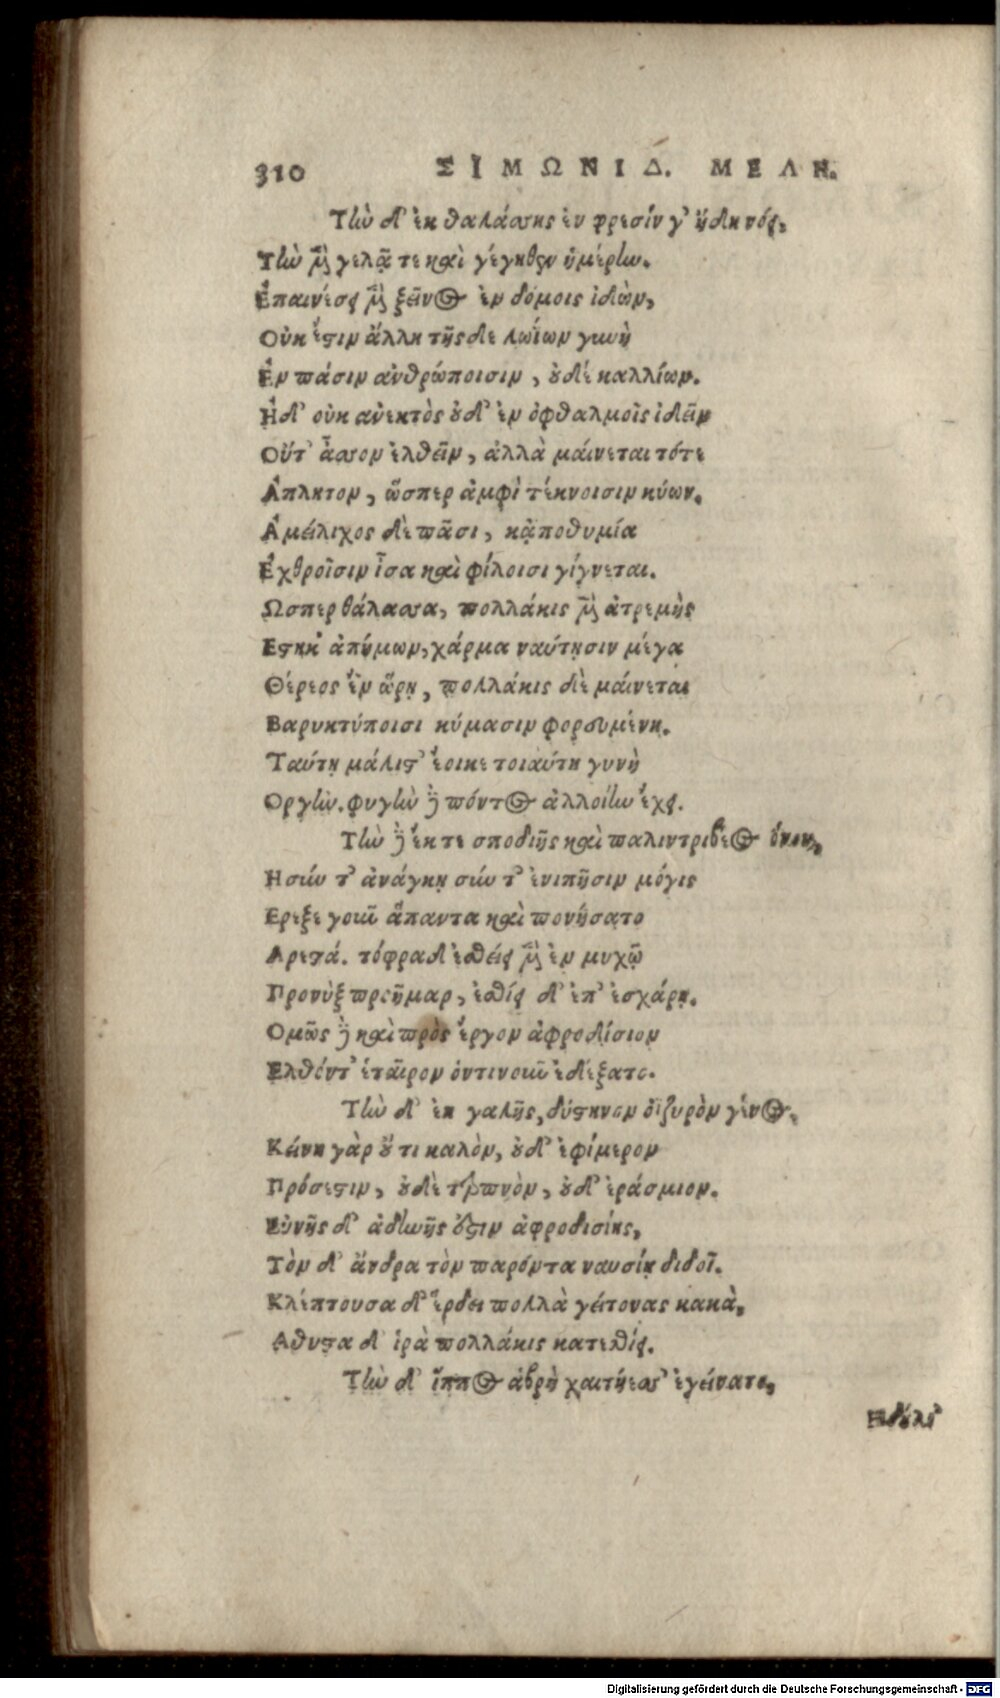 310 ΣΙΜΩΝΙΔ. ΜΕΛΗ.
Τὴν δ' ἐκ θαλάσσης ἐν φρεσίν γ' ἤδει νόει,
Τὴν μὲν γελᾷ τε καὶ γέγηθεν ἡμέρην.
Ἐπαινέσει μὲν ξεῖνος ἐν δόμοις ἰδὼν,
Οὐκ ἔστιν ἄλλη τῆσδε λωΐων γυνὴ
Ἐν πάσιν ἀνθρώποισιν, οὐδὲ καλλίων.
Ἠδ' οὐκ ἀνεκτὸς οὐδ' ἐν ὀφθαλμοῖς ἰδεῖν
Οὔτ' ἆσσον ἐλθεῖν, ἀλλὰ μαίνεται τότε
Ἄπλητον, ὥσπερ ἀμφὶ τέκνοισιν κύων.
Ἀμείλιχος δὲ πᾶσι, κᾀποθυμία
Ἐχθροῖσιν ἶσα καὶ φίλοισι γίγνεται.
Ωσπερ θάλασσα, πολλάκις μὲν ἀτρεμὴς
Εστηκ' ἀπήμων, χάρμα ναύτῃσιν μέγα
Θέρεος ἐν ὥρῃ, πολλάκις δὲ μαίνεται
Βαρυκτύποισι κύμασιν φορουμένη.
Ταύτῃ μάλιστ' ἔοικε τοιαύτη γυνὴ
Οργὴν. φυγὴν δὲ πόντος ἀλλοίην ἔχει.
Τὴν δὲ ἔκ τε σποδιῆς καὶ παλιντριβέος ὄνου,
Η σύν τ' ἀνάγκῃ σύν τ' ἐνιπῇσιν μόγις
Ερεξε γοῦν ἅπαντα καὶ πονήσατο
Αρεστά. τόφρα δ' ἐσθίει μὲν ἐν μυχῷ
Προνὺξ προῆμαρ, ἐσθίει δ' ἐπ' ἐσχάρῃ.
Ομῶς δὲ καὶ πρὸς ἔργον ἀφροδίσιον
Ελθόντ' ἑταῖρον ὁντινοῦν ἐδέξατο.
Τὴν δ' ἐκ γαλῆς, δύστηνον ὀϊζυρὸν γένος.
Κείνη γὰρ οὔ τι καλὸν, οὐδ' ἐφίμερον
Πρόσεστιν, οὐδὲ τερπνὸν, οὐδ' ἐράσμιον.
Εὐνῆς δ' ἀδηνῆς ἐστιν ἀφροδισίης,
Τὸν δ' ἄνδρα τὸν παρόντα ναυσίῃ διδοῖ.
Κλέπτουσα δ' ἔρδει πολλὰ γείτονας κακὰ,
Αθυστα δ' ἱρὰ πολλάκις κατεσθίει.
Τὴν δ' ἵππος ἁβρὴ χαιτήεσσ' ἐγείνατο,
Η δούλι'
Digitalisierung gefördert durch die Deutsche Forschungsgemeinschaft - DFG